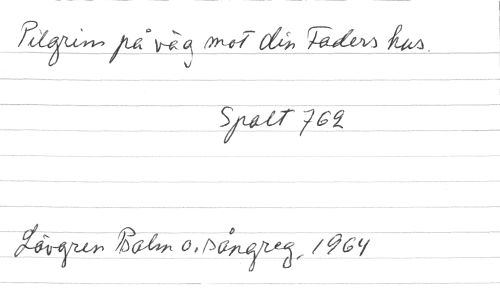 Pilgrim på väg mot din Faders hus.
Spalt 762
Lövgren Psalm o. sångreg. 1964